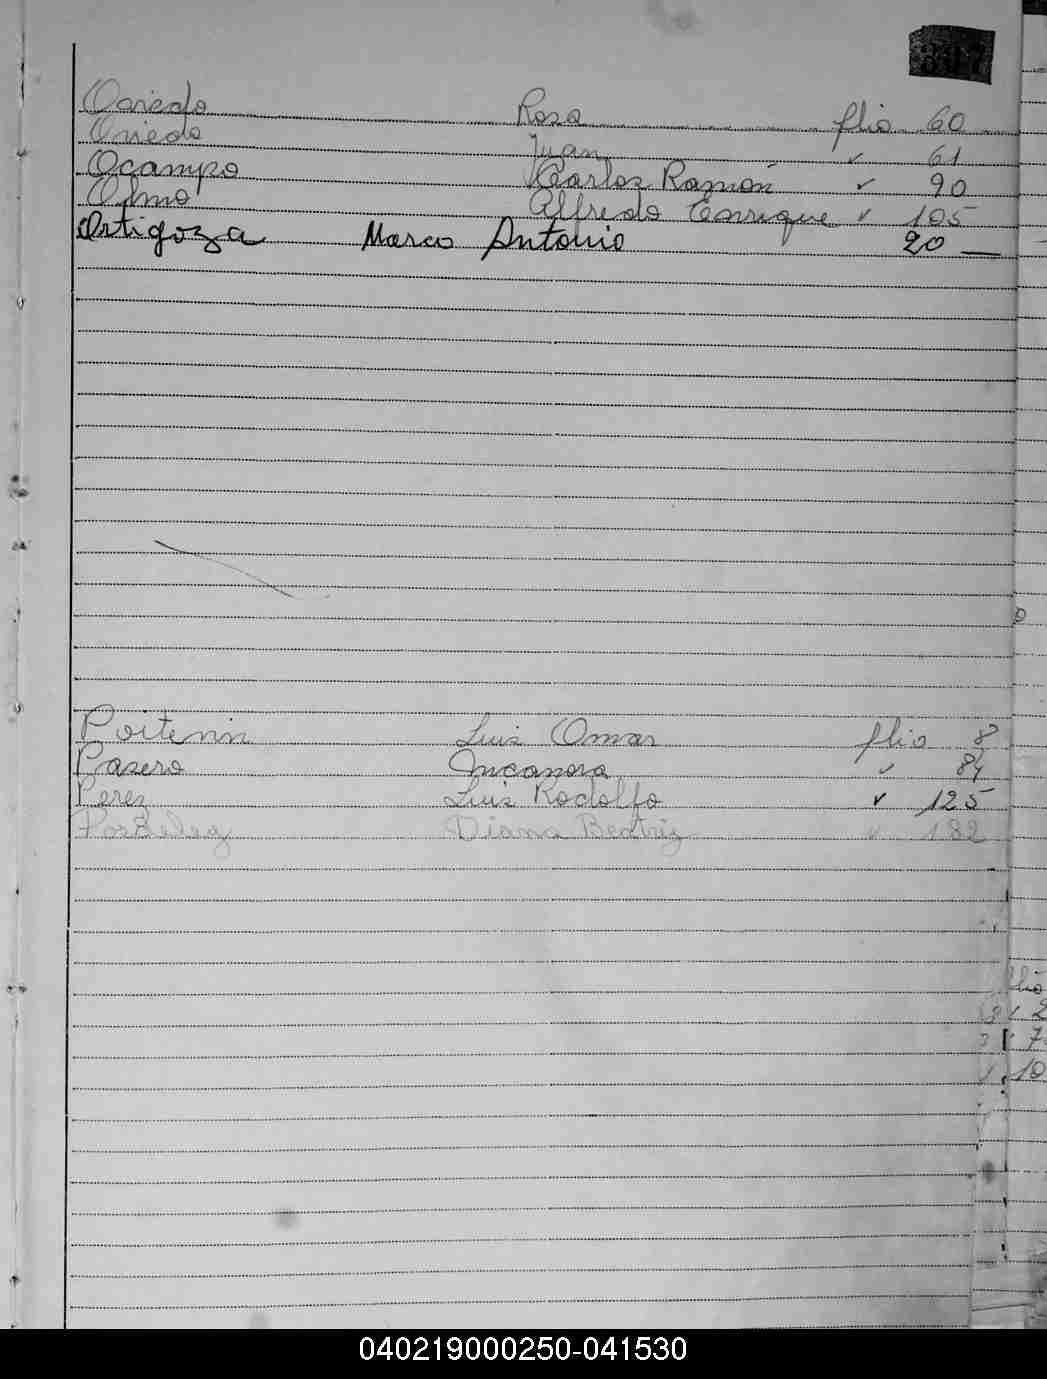 307
Oviedo Rosa flio 60
Oviedo Juan ✓ 61
Ocampo Carlos Ramón ✓ 90
Olmo Alfredo Enrique ✓ 105
Ortigoza Marco Antonio 20 —
Poitevin Luis Omar flio 8
Pasero ✓ 84
Perez Luis Rodolfo ✓ 125
Diana Beatriz ✓ 182
flio
040219000250-041530